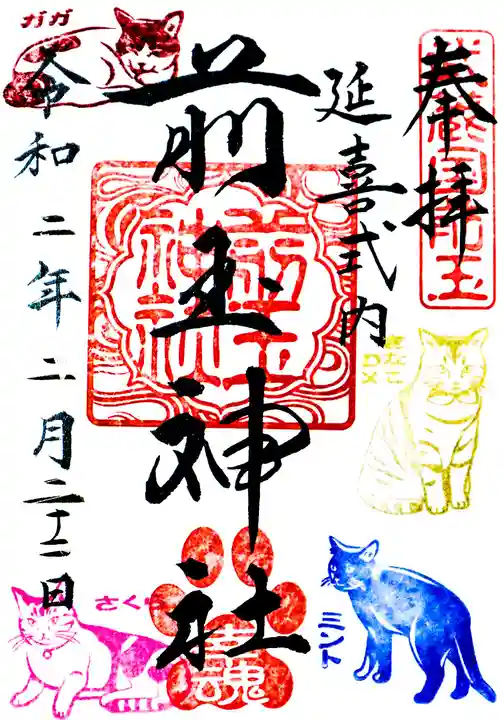 奉拝
延喜式内
前玉神社
令和二年二月二十二日
前玉
神社
ガガ
ミント
さくら
幸魂